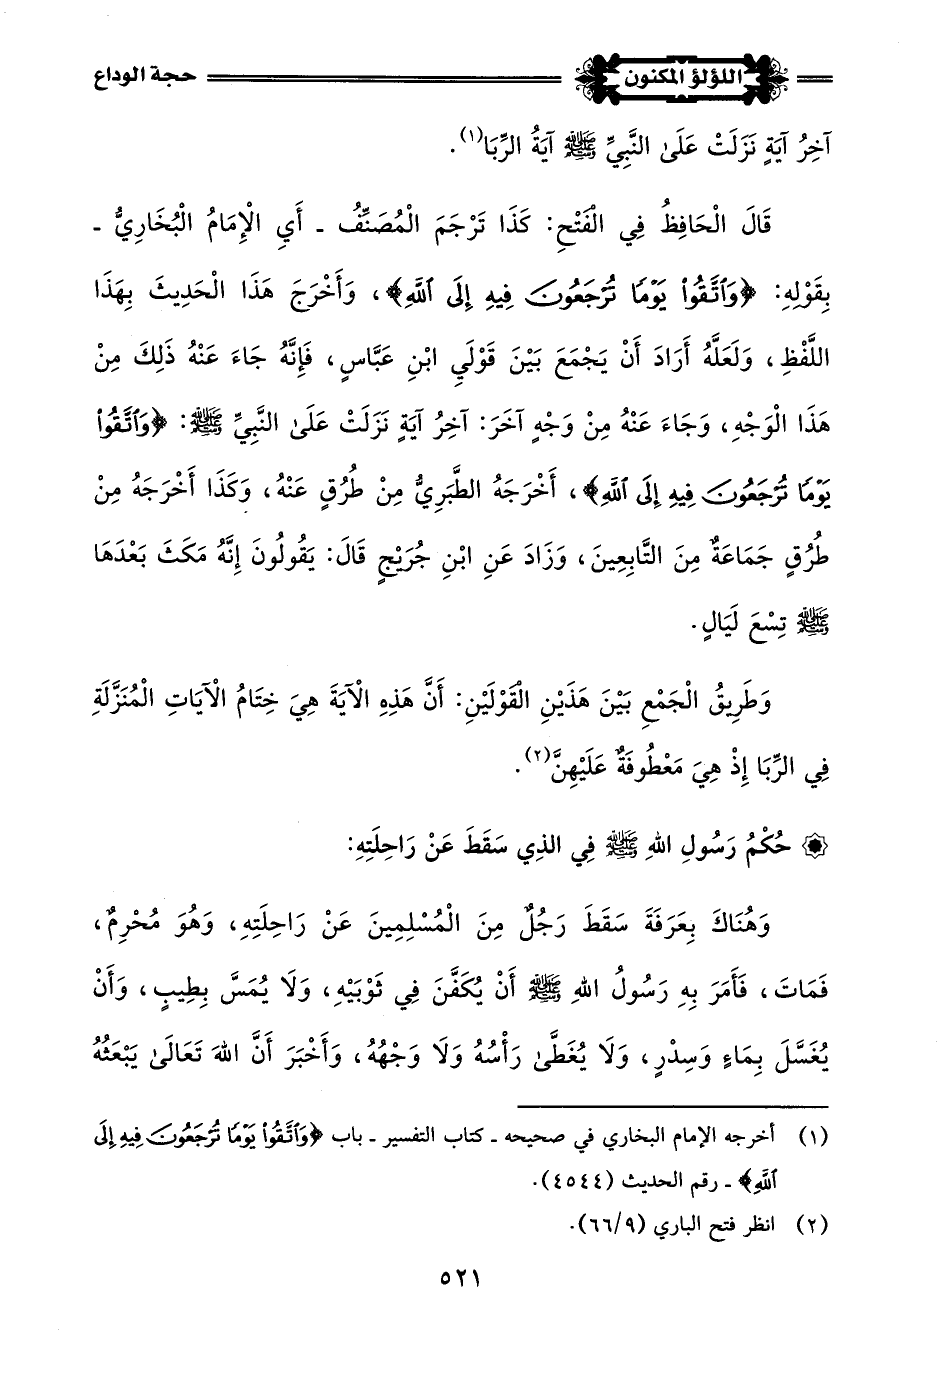 اللؤلؤ المكنون حجة الوداع
آخِرُ آيَةٍ نَزَلَتْ عَلَىٰ النَّبِيِّ ﷺ آيَةُ الرِّبَا(١).
قَالَ الْحَافِظُ فِي الْفَتْحِ: كَذَا تَرْجَمَ الْمُصَنِّفُ ـ أَيِ الْإِمَامُ الْبُخَارِيُّ ـ
بِقَوْلِهِ: ﴿وَٱتَّقُوا۟ يَوْمًا تُرْجَعُونَ فِيهِ إِلَى ٱللَّهِ﴾، وَأَخْرَجَ هَذَا الْحَدِيثَ بِهَذَا
اللَّفْظِ، وَلَعَلَّهُ أَرَادَ أَنْ يَجْمَعَ بَيْنَ قَوْلَيِ ابْنِ عَبَّاسٍ، فَإِنَّهُ جَاءَ عَنْهُ ذَلِكَ مِنْ
هَذَا الْوَجْهِ، وَجَاءَ عَنْهُ مِنْ وَجْهٍ آخَرَ: آخِرُ آيَةٍ نَزَلَتْ عَلَىٰ النَّبِيِّ ﷺ: ﴿وَٱتَّقُوا۟
يَوْمًا تُرْجَعُونَ فِيهِ إِلَى ٱللَّهِ﴾، أَخْرَجَهُ الطَّبَرِيُّ مِنْ طُرُقٍ عَنْهُ، وَكَذَا أَخْرَجَهُ مِنْ
طُرُقٍ جَمَاعَةٌ مِنَ التَّابِعِينَ، وَزَادَ عَنِ ابْنِ جُرَيْجٍ قَالَ: يَقُولُونَ إِنَّهُ مَكَثَ بَعْدَهَا
ﷺ تِسْعَ لَيَالٍ.
وَطَرِيقُ الْجَمْعِ بَيْنَ هَذَيْنِ الْقَوْلَيْنِ: أَنَّ هَذِهِ الْآيَةَ هِيَ خِتَامُ الْآيَاتِ الْمُنَزَّلَةِ
فِي الرِّبَا إِذْ هِيَ مَعْطُوفَةٌ عَلَيْهِنَّ(٢).
۞ حُكْمُ رَسُولِ اللهِ ﷺ فِي الذِي سَقَطَ عَنْ رَاحِلَتِهِ:
وَهُنَاكَ بِعَرَفَةَ سَقَطَ رَجُلٌ مِنَ الْمُسْلِمِينَ عَنْ رَاحِلَتِهِ، وَهُوَ مُحْرِمٌ،
فَمَاتَ، فَأَمَرَ بِهِ رَسُولُ اللهِ ﷺ أَنْ يُكَفَّنَ فِي ثَوْبَيْهِ، وَلَا يُمَسَّ بِطِيبٍ، وَأَنْ
يُغَسَّلَ بِمَاءٍ وَسِدْرٍ، وَلَا يُغَطَّىٰ رَأْسُهُ وَلَا وَجْهُهُ، وَأَخْبَرَ أَنَّ اللهَ تَعَالَىٰ يَبْعَثُهُ
(١) أخرجه الإمام البخاري في صحيحه ـ كتاب التفسير ـ باب ﴿وَٱتَّقُوا۟ يَوْمًا تُرْجَعُونَ فِيهِ إِلَى
ٱللَّهِ﴾ ـ رقم الحديث (٤٥٤٤).
(٢) انظر فتح الباري (٦٦/٩).
٥٢١